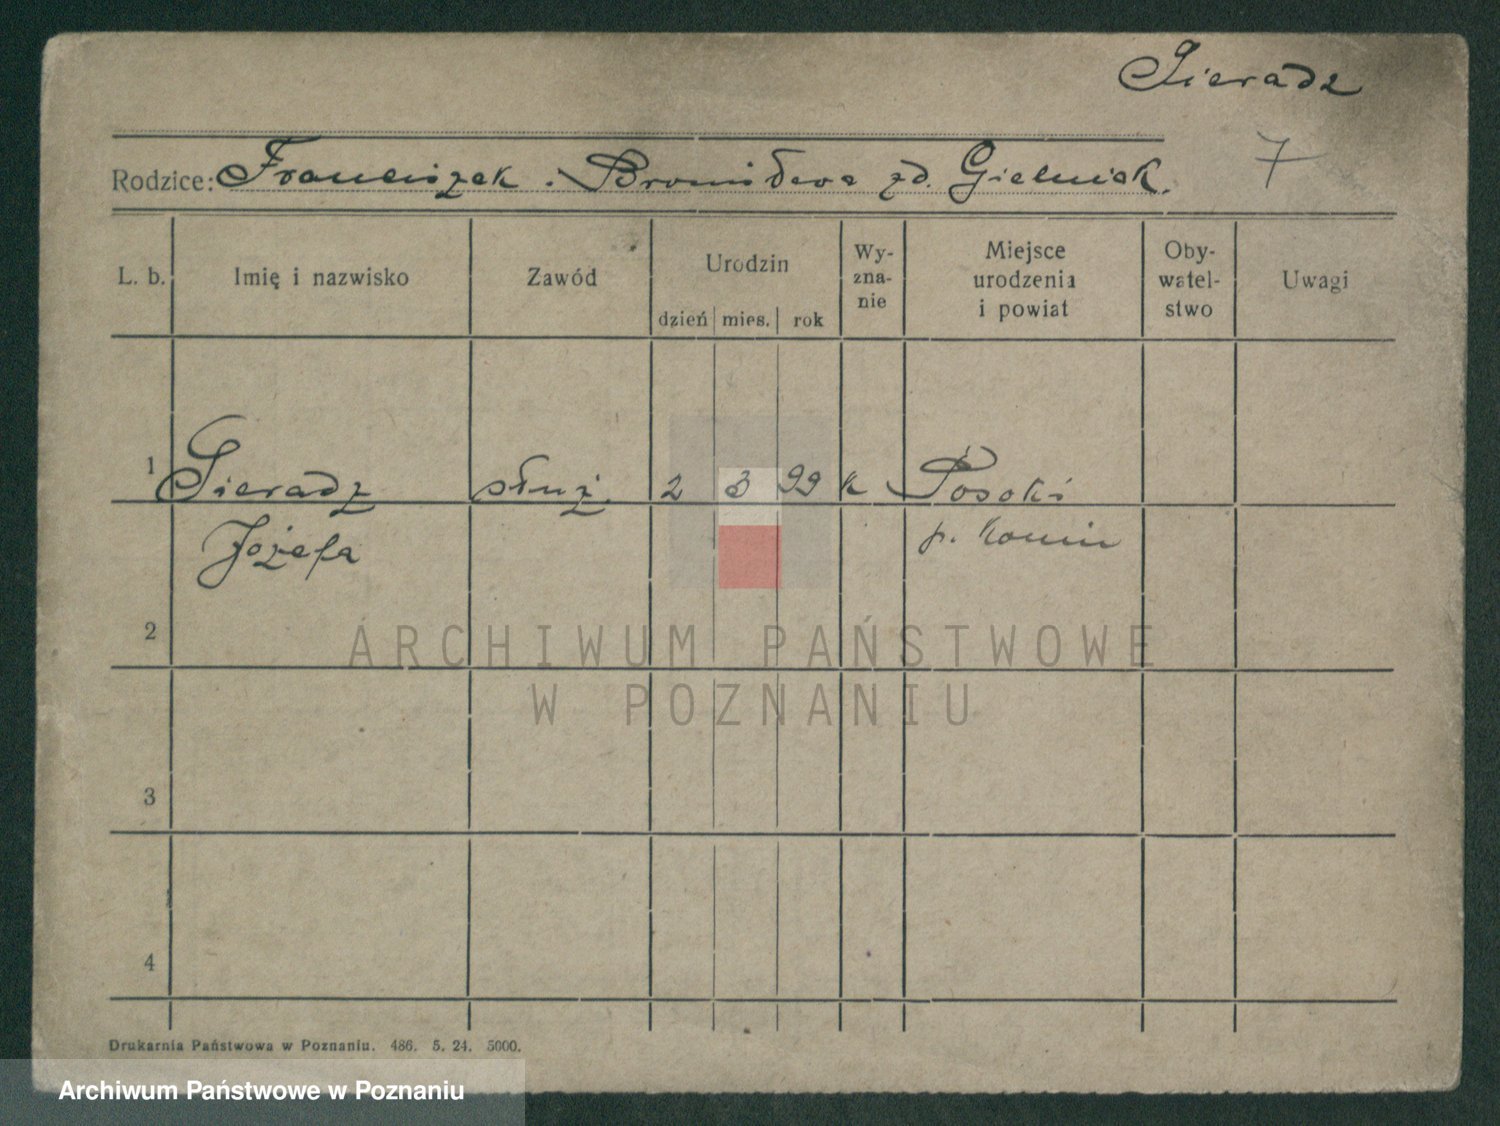 Sieradz
7
Rodzice: Franciszek i Bronisława zd. Gielniak.
L. b. Imię i nazwisko Zawód Urodzin dzień mies. rok Wy-zna-nie Miejsce urodzenia i powiat Oby-watel-stwo Uwagi
1 Sieradz służ. 2 3 99 k Posoki
Józefa p. Konin
2
ARCHIWUM PAŃSTWOWE
W POZNANIU
3
4
Drukarnia Państwowa w Poznaniu. 486. 5. 24. 5000.
Archiwum Państwowe w Poznaniu